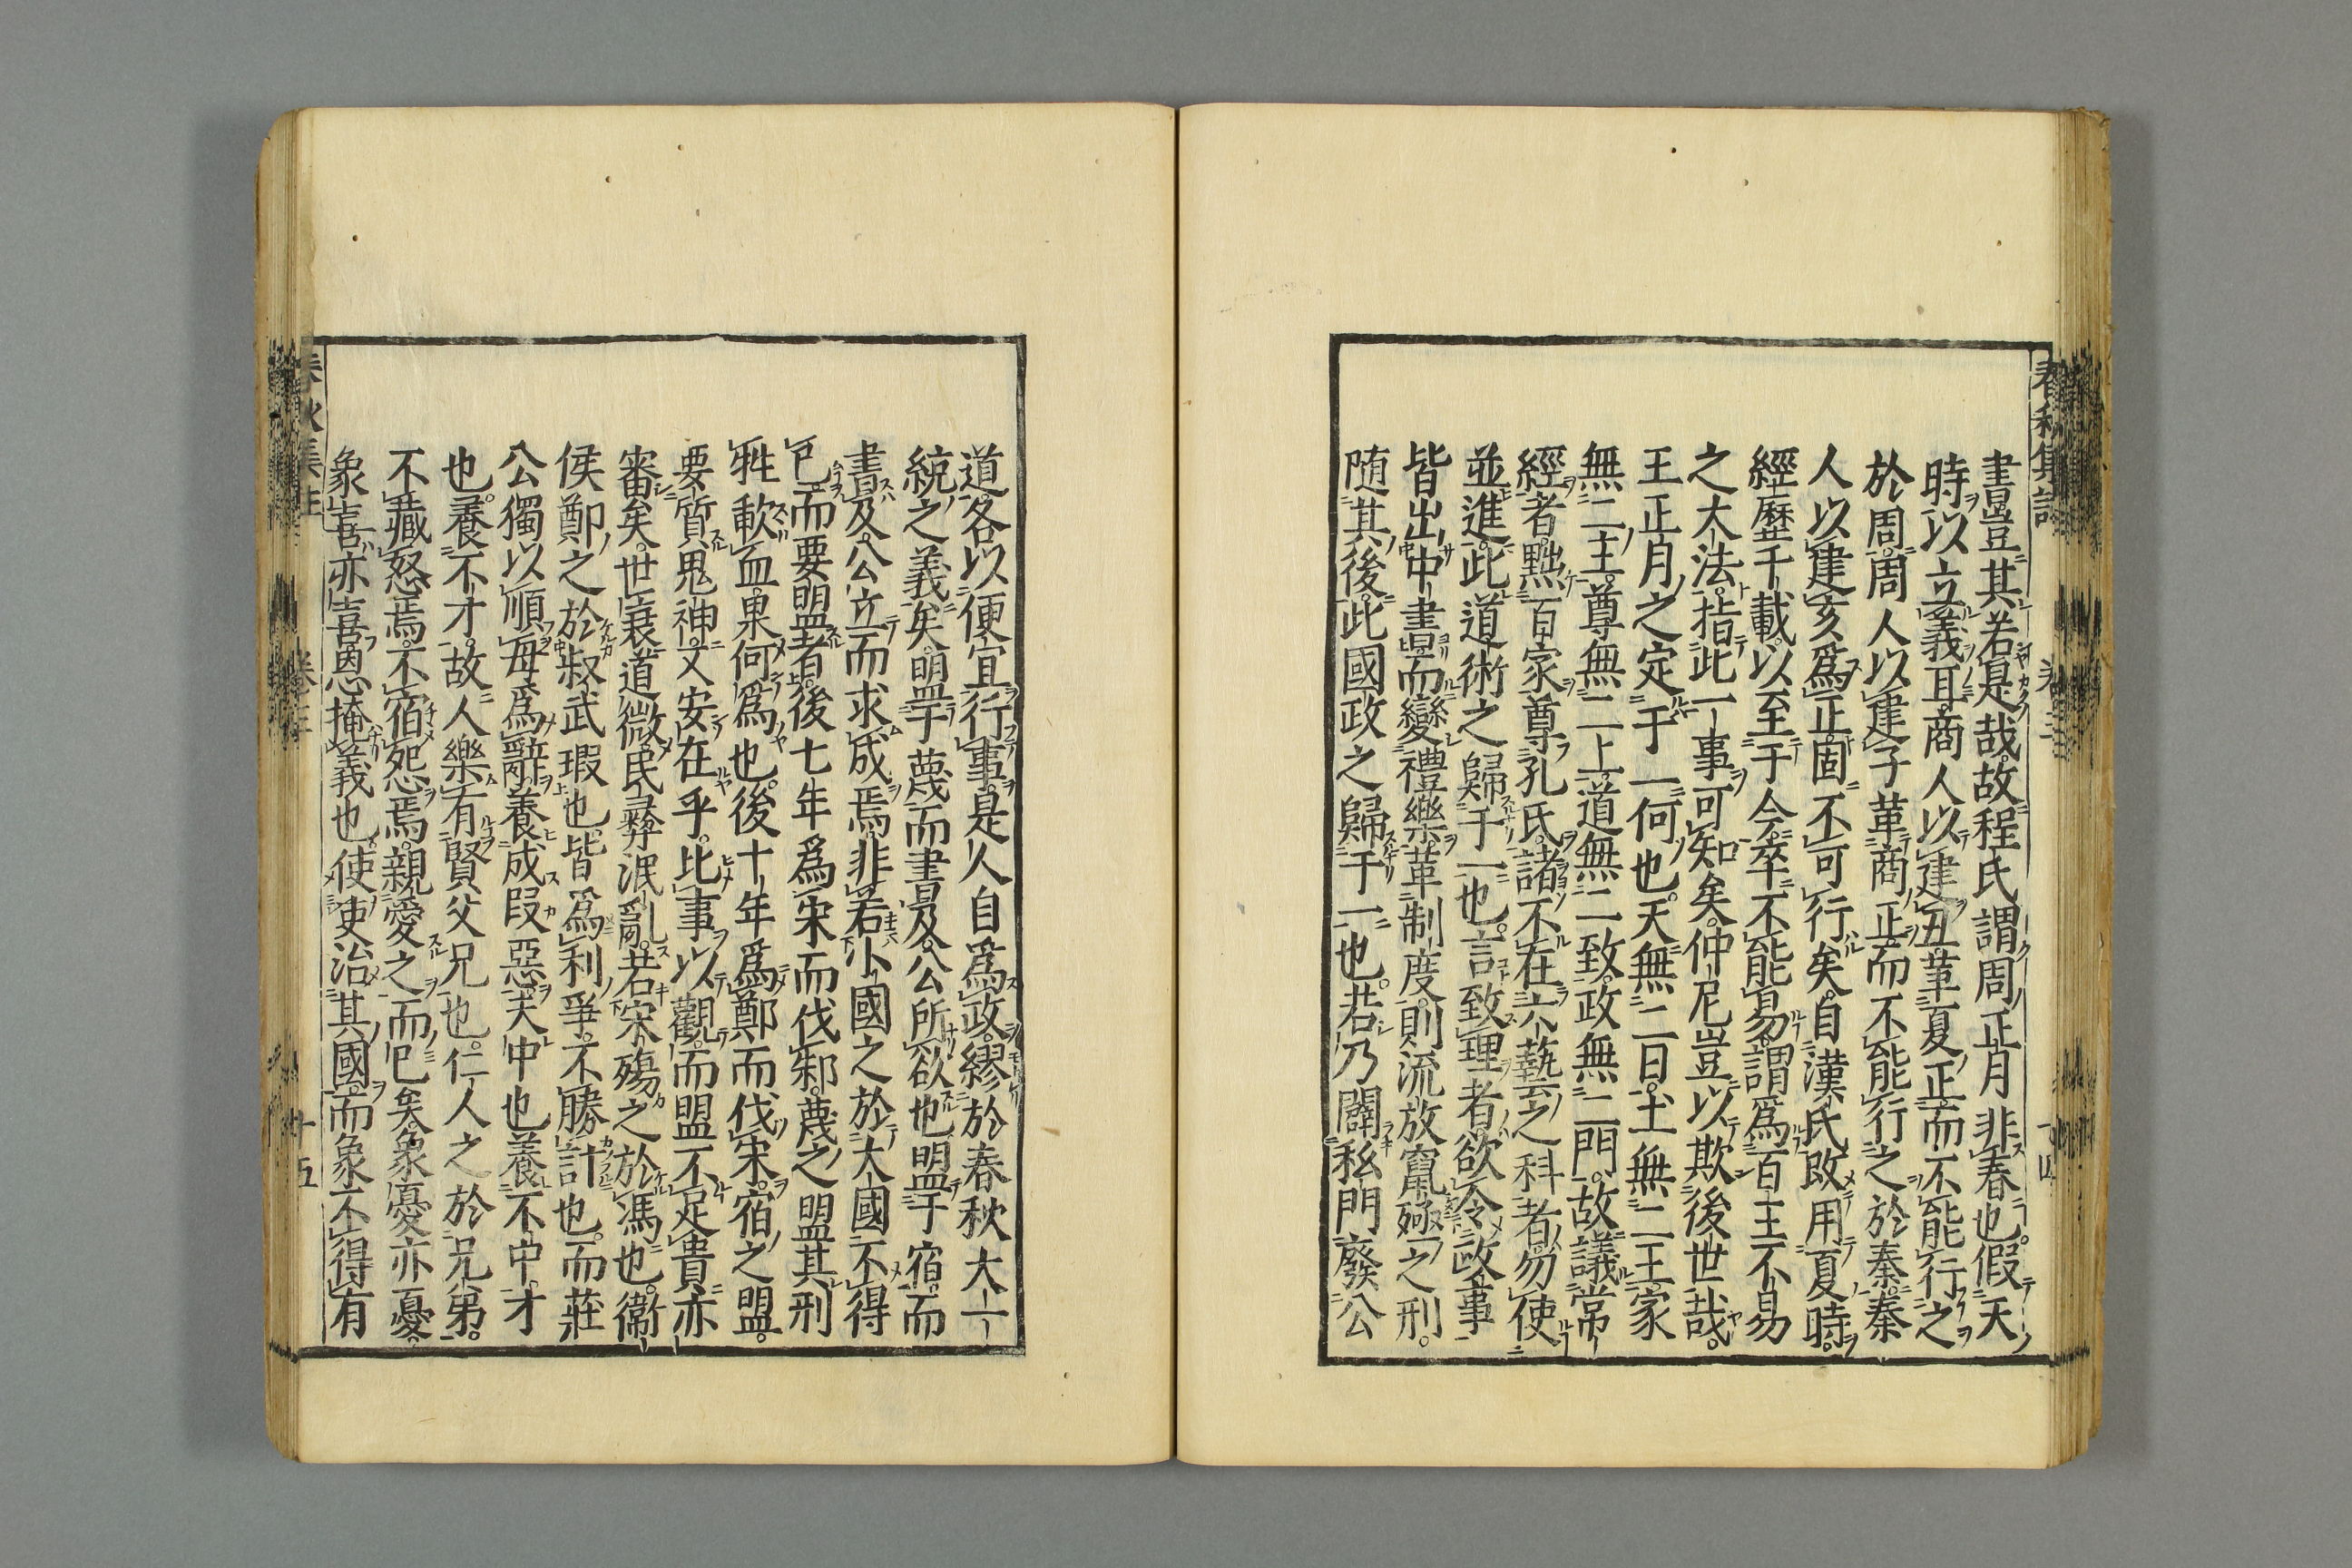 春秋集註 卷三 十四
書豈其若是哉故程氏謂周正月非春也假天
時以立義耳商人以建丑革夏正而不能行之
於周周人以建子革商正而不能行之於秦秦
人以建亥爲正固不可行矣自漢氏改用夏時
經歷千載以至于今卒不能易謂爲百王不易
之大法指此一事可知矣仲尼豈以欺後世哉
王正月之定于一何也天無二日土無二王家
無二主尊無二上道無二致政無二門故議常
經者黜百家尊孔氏諸不在六藝之科者勿使
並進此道術之歸于一也言致理者欲令政事
皆出中書而變禮樂革制度則流放竄殛之刑
随其後此國政之歸于一也若乃闢私門廢公
道各以便宜行事是人自爲政繆於春秋大一
統之義矣盟于蔑而書及公所欲也盟于宿而
書及公立而求成焉非若小國之於大國不得
已而要盟者後七年爲宋而伐邾蔑之盟其刑
牲歃血果何爲也後十年爲鄭而伐宋宿之盟
要質鬼神又安在乎比事以觀而盟不足貴亦
審矣世衰道微民彛泯亂若宋殤之於馮也衞
侯鄭之於叔武瑕也皆爲利爭不勝計也而莊
公獨以順母爲辭養成叚惡夫中也養不中才
也養不才故人樂有賢父兄也仁人之於兄弟
不藏怒焉不宿怨焉親愛之而已矣象憂亦憂
象喜亦喜恩掩義也使吏治其國而象不得有
春秋集註 卷三 十五